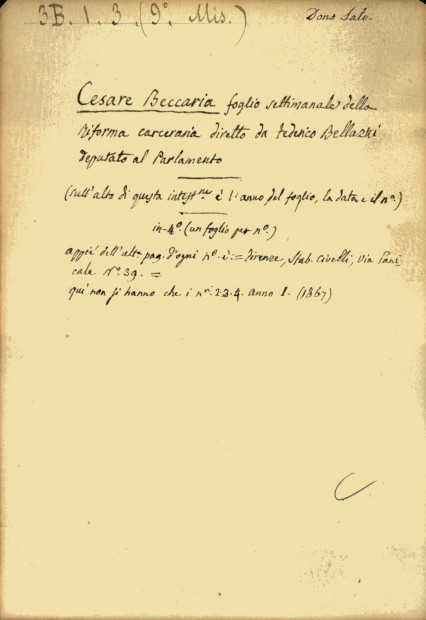 3B. 1. 3. (9° Mis.)
Dono Salv.
Cesare Beccaria foglio settimanale della
riforma carceraria diretto da Federico Bellazzi
deputato al Parlamento
(sull'alto di questa intestne è l'anno del foglio, la data e il n°.)
in-4° (un foglio per n°.)
appiè dell'alta pag. d'ogni n°. è: = Firenze, Stab. Civelli, via Pani-
cale N° 39. =
quì non si hanno che i nri 2.3.4. anno I. (1867)